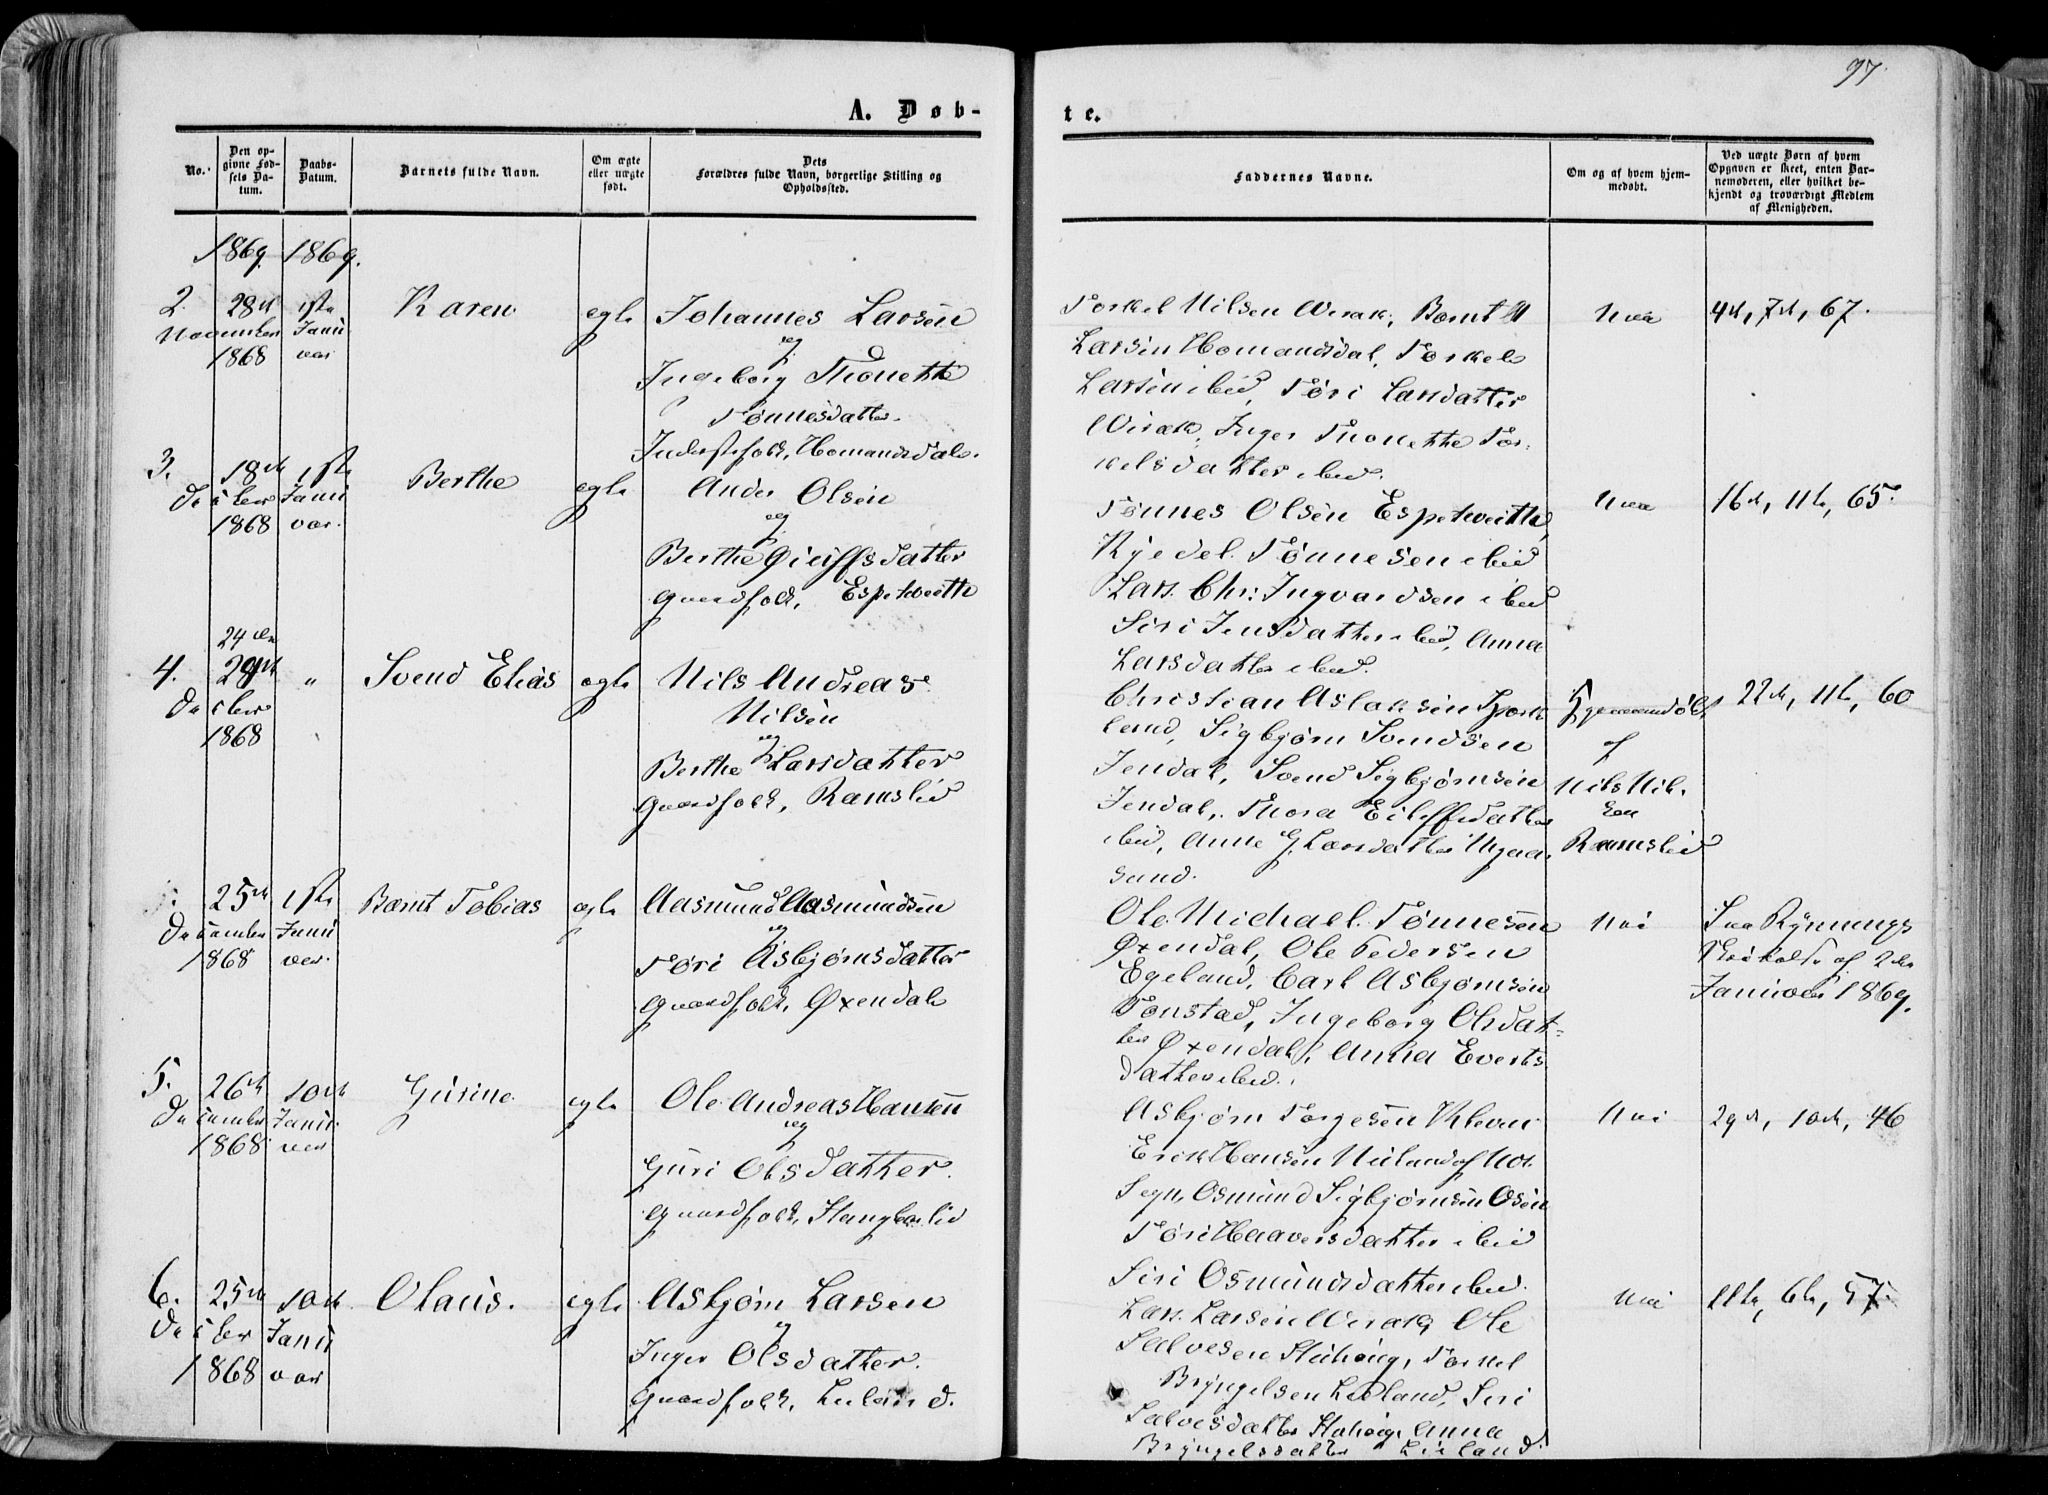 97.
A. Døb-
te.
No.
Den op-
givne Fød-
sels Da-
tum.
Daabs-
Datum.
Barnets fulde Navn.
Om ægte
eller uægte
født.
Dets
Forældres fulde Navn, borgerlige Stilling og
Opholdssted.
Faddernes Navne.
Om og af hvem hjem-
medøbt.
Ved uægte Børn af hvem
Opgaven er skeet, enten Bar-
nemoderen, eller hvilket be-
kjendt og troværdigt Medlem
af Menigheden.
1869. 1869.
2.
28de
November
1868
1ste
Janu
var
Karen
egte
Johannes Larsen
og
Ingeborg Thonette
Tønnesdatter.
Inderstfolk, Homandsdal.
Torkel Nilsen Virak, Bernt
Larsen Homandsdal, Torkel
Larsen ibid, Tøri Larsdatter
Virak, Inger Thonette Tor-
kelsdatter ibid.
Nei
4de, 7de, 67.
3.
18de
Decbr
1868
1ste
Janu
var.
Berthe
egte
Ander Olsen
og
Berthe
Gaardfolk, Espetveith
Tønnes Olsen Espetveith,
Kjedel Tønnesen ibid
Lars Chr: Ingvardsen ibid
Siri Jensdatter ibid, Anna
Larsdatter ibid.
Nei
16de, 11te, 65.
4.
24de
29de
Decbr
1868
"
Svend Elias
egte
Nils Andreas
Nilsen
og
Berthe Larsdatter
Gaardfolk, Ramslid
Christian Aslaksen
land, Sigbjørn Svendsen
Jendal, Svend Sigbjørnsen
Jendal, Thora Eileffsdatter
ibid, Anne G. Larsdatter Ugaa-
sand.
Hjemmedøbt
af
Nils Nil-
sen
Ramslid
22de, 11te, 60
25de
December
1868
1ste
Janu
var.
Bernt Tobias
egte
Aasmund Aasmundsen
og
Tøri Asbjørnsdatter
Gaardfolk, Øxendal
Ole Michael Tønnesen
Øxendal, Ole Pedersen
Egeland, Carl Asbjørnsen
Tonstad, Ingeborg Olsdat-
ter Øxendal, Anna Everts-
datter ibid.
Nei
af 2den
Januar 1869.
5.
26de
December
1868
10de
Janu
var
Gurine
egte
Ole Andreas Hansen
og
Guri Olsdatter.
Gaardfolk,
Asbjørn Torgesen
Erik Hansen
Segn, Osmund Sigbjørnsen Osen
Tøri Haaversdatter ibid
Siri Osmundsdatter ibid.
Nei
29de, 10de, 46
6.
25de
Decbr
1868
10de
Janu
var
Olaus.
egte
Asbjørn Larsen
og
Inger Olsdatter.
Gaardfolk,
Lars Larsen Virak, Ole
Salvesen Torkel
Bryngelsen Lidland, Siri
Salvesdatter Anna
Bryngelsdatter
Nei
11te, 6te, 57.